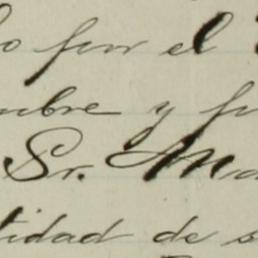 por el
mbre y
Sr.
tidad de